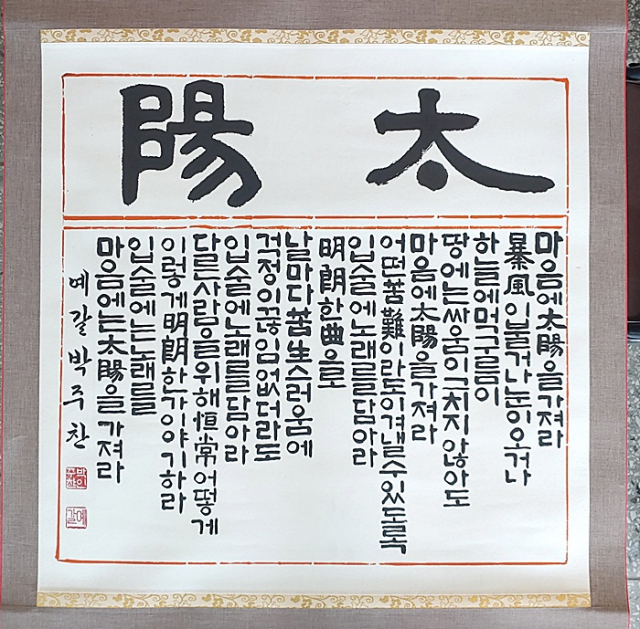 太陽
마음에太陽을가져라
暴風이불거나눈이오거나
하늘에먹구름이
땅에는싸움이그치지않아도
마음에太陽을가져라
어떤苦難이라도이겨낼수있도록
입술에노래를담아라
明朗한曲으로
날마다苦生스러움에
걱정이끊임없더라도
입술에노래를담아라
다른사람을위해恒常어떻게
이렇게明朗한가이야기하라
입술에는노래를
마음에는太陽을가져라
예갈박주찬
예갈